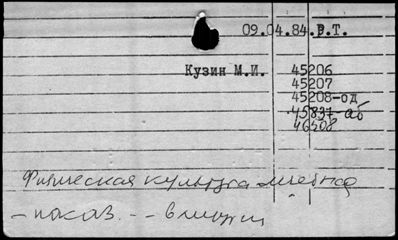 09.04.84.р.т.
Кузин М.И. 45206
45207
45208-од
45837-аб
46508
Физическая культура лечебная
- показ.